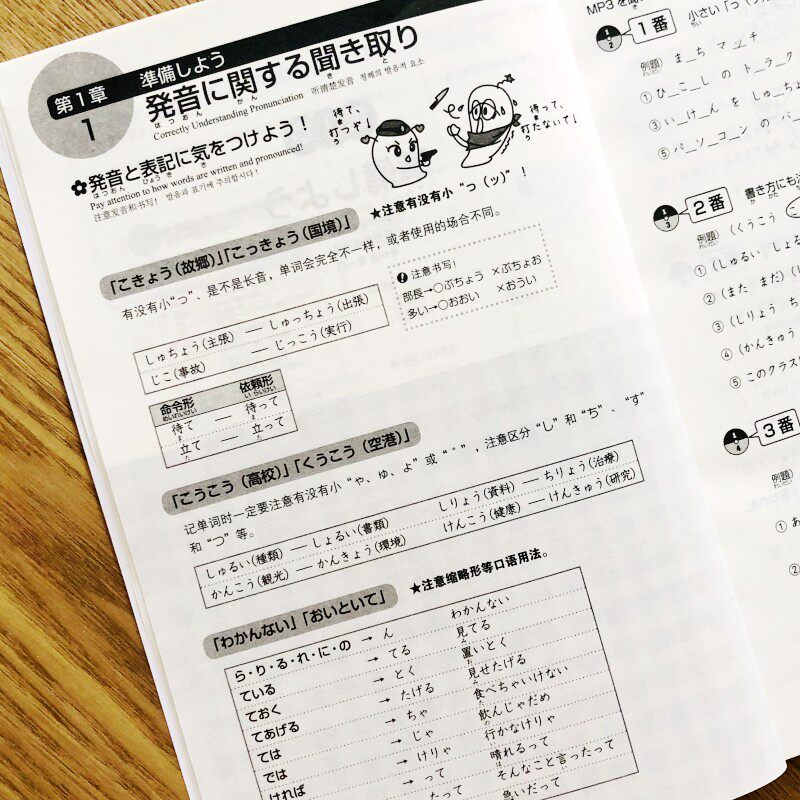 第1章 準備しよう
1
発音に関する聞き取り
はつおん かん き と
Correctly Understanding Pronunciation 听清楚发音 정확의 발음적 요소
待て、
打つぞ！
待って、
打たないで！
✿発音と表記に気をつけよう！
はつおん ひょうき き
Pay attention to how words are written and pronounced!
注意发音和书写！ 발음과 표기에 주의합시다！
「こきょう（故郷）」「こっきょう（国境）」
★注意有没有小“っ（ッ）”！
有没有小“っ”、是不是长音，单词会完全不一样，或者使用的场合不同。
しゅちょう（主張） — しゅっちょう（出張）
じこ（事故） — じっこう（実行）
注意书写！
部長→○ぶちょう ×ぶちょお
多い→○おおい ×おうい
命令形 依頼形
めいれいけい いらいけい
待て — 待って
立て — 立って
「こうこう（高校）」「くうこう（空港）」
记单词时一定要注意有没有小“ゃ、ゅ、ょ”或“゛”，注意区分“し”和“ち”、“す”
和“つ”等。
しゅるい（種類） — しょるい（書類） しりょう（資料） — ちりょう（治療）
かんこう（観光） — かんきょう（環境） けんこう（健康） — けんきゅう（研究）
「わかんない」「おいといて」
★注意缩略形等口语用法。
ら・り・る・れ・に・の → ん わかんない
ている → てる 見てる
ておく → とく 置いとく
てあげる → たげる 見せたげる
ては → ちゃ 食べちゃいけない
では → じゃ 飲んじゃだめ
ければ → けりゃ 行かなけりゃ
→ って 晴れるって
たって そんなこと言ったって
急いだって
MP3を聞
1番 小さい「っ（ッ
例題 ま＿ち マ＿チ
①ひ＿こ＿し の ト＿ラ＿ク
③い＿け＿ん を しゅ＿ちょ
⑤パ＿ソ＿コ＿ン の バ＿
2番 書き方にも注
例題 （くうこう こ
①（しゅるい しょる
②（また まだ）（し
③（しりょう ち
④（かんきゅう
⑤このクラス
3番
例題
①あ
②